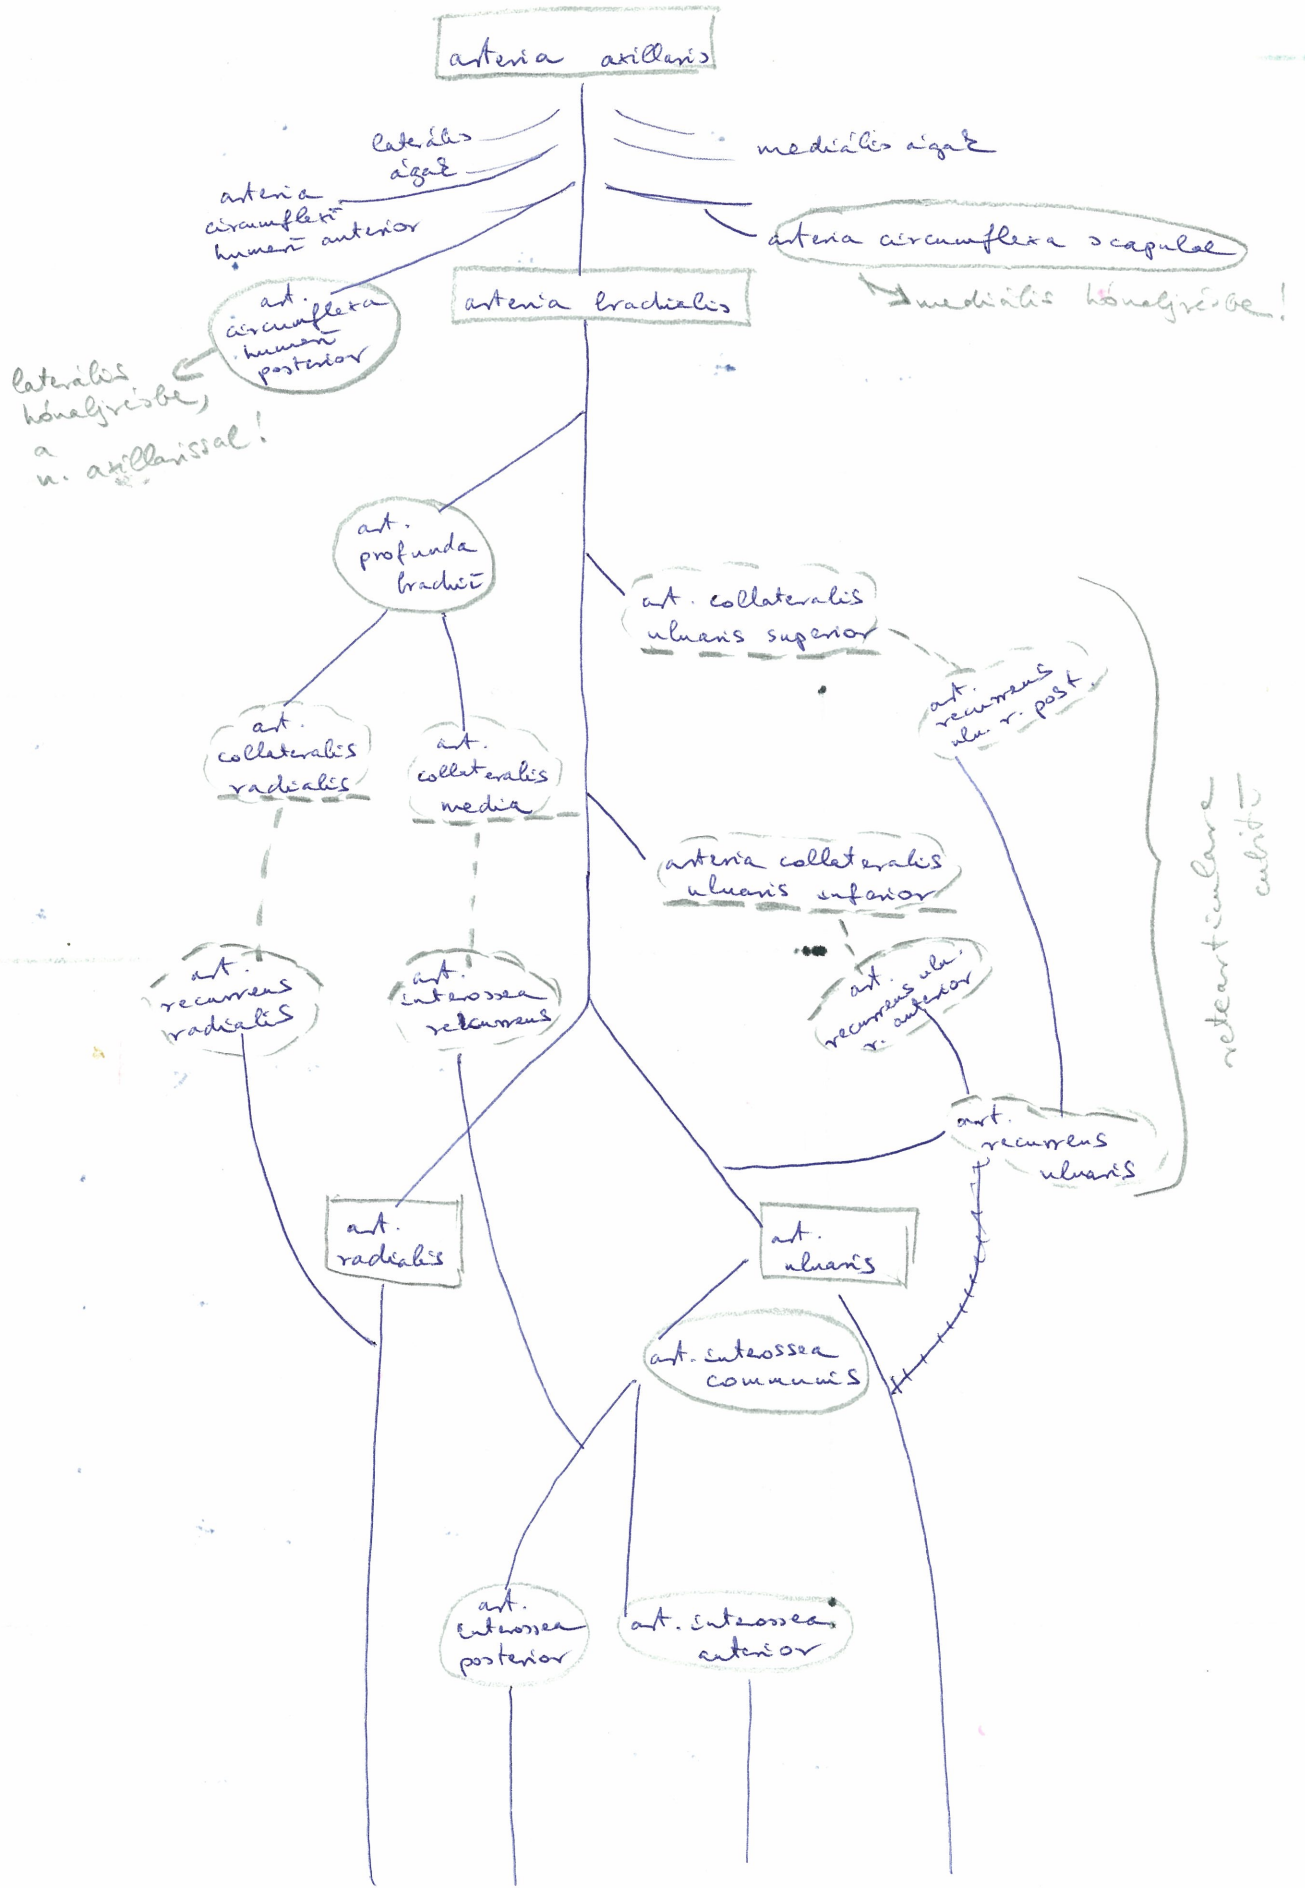 arteria axillaris
laterális
ágak
mediális ágak
arteria
circumflexa
humeri anterior
arteria circumflexa scapulae
mediális hónaljrésbe!
art.
circumflexa
humeri
posterior
arteria brachialis
laterális
hónaljrésbe,
a
n. axillarissal!
art.
profunda
brachii
art. collateralis
ulnaris superior
art.
recurrens
uln. r. post.
art.
collateralis
radialis
art.
collateralis
media
arteria collateralis
ulnaris inferior
rete articulare
cubiti
art.
recurrens
radialis
art.
interossea
recurrens
art.
recurrens uln.
r. anterior
art.
recurrens
ulnaris
art.
radialis
art.
ulnaris
art. interossea
communis
art.
interossea
posterior
art. interossea
anterior